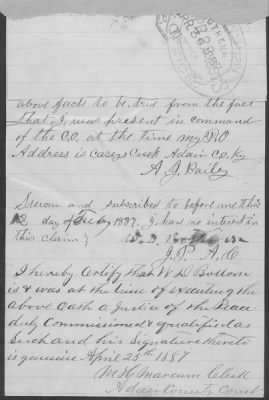 above facts to be true from the fact
that I was present in command
of the CO, at the time my P.O
Address is Caseys Creek Adair Co. Ky
A. J. Bailey
Sworn and subscribed to before me this
12 day of Feby 1887. I have no interest in
this claim
J.P. A.C
I hereby certify that W D Bottom
is & was at the time of executing the
above Cash a Justice of the Peace
duly Commissioned & qualified as
such and his signature thereto
is genuine April 25th 1887
Marcum Clerk
Adair County Court